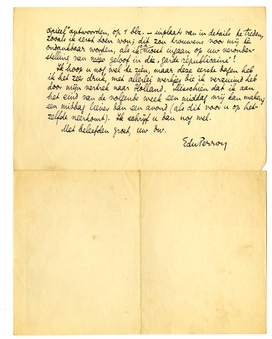 brief" antwoorden, op 1 blz. – inplaats van in details te treden,
zooals ik eerst doen wou; dit zou trouwens voor mij te
ondankbaar worden, als ik moest ingaan op uw veronder-
stelling van mijn geloof in die "garde républicaine"!
Ik hoop u nog wel te zien, maar deze eerste dagen heb
ik het zeer druk, met allerlei werkjes die ik verzuimd heb
door mijn vertrek naar Holland. Misschien dat ik aan
het eind van de volgende week een middag vrij kan maken,
een middag liever dan een avond (als dit voor u op het-
zelfde neerkomt). Ik schrijf u dan nog wel.
Met beleefden groet, uw dw.
EduPerron